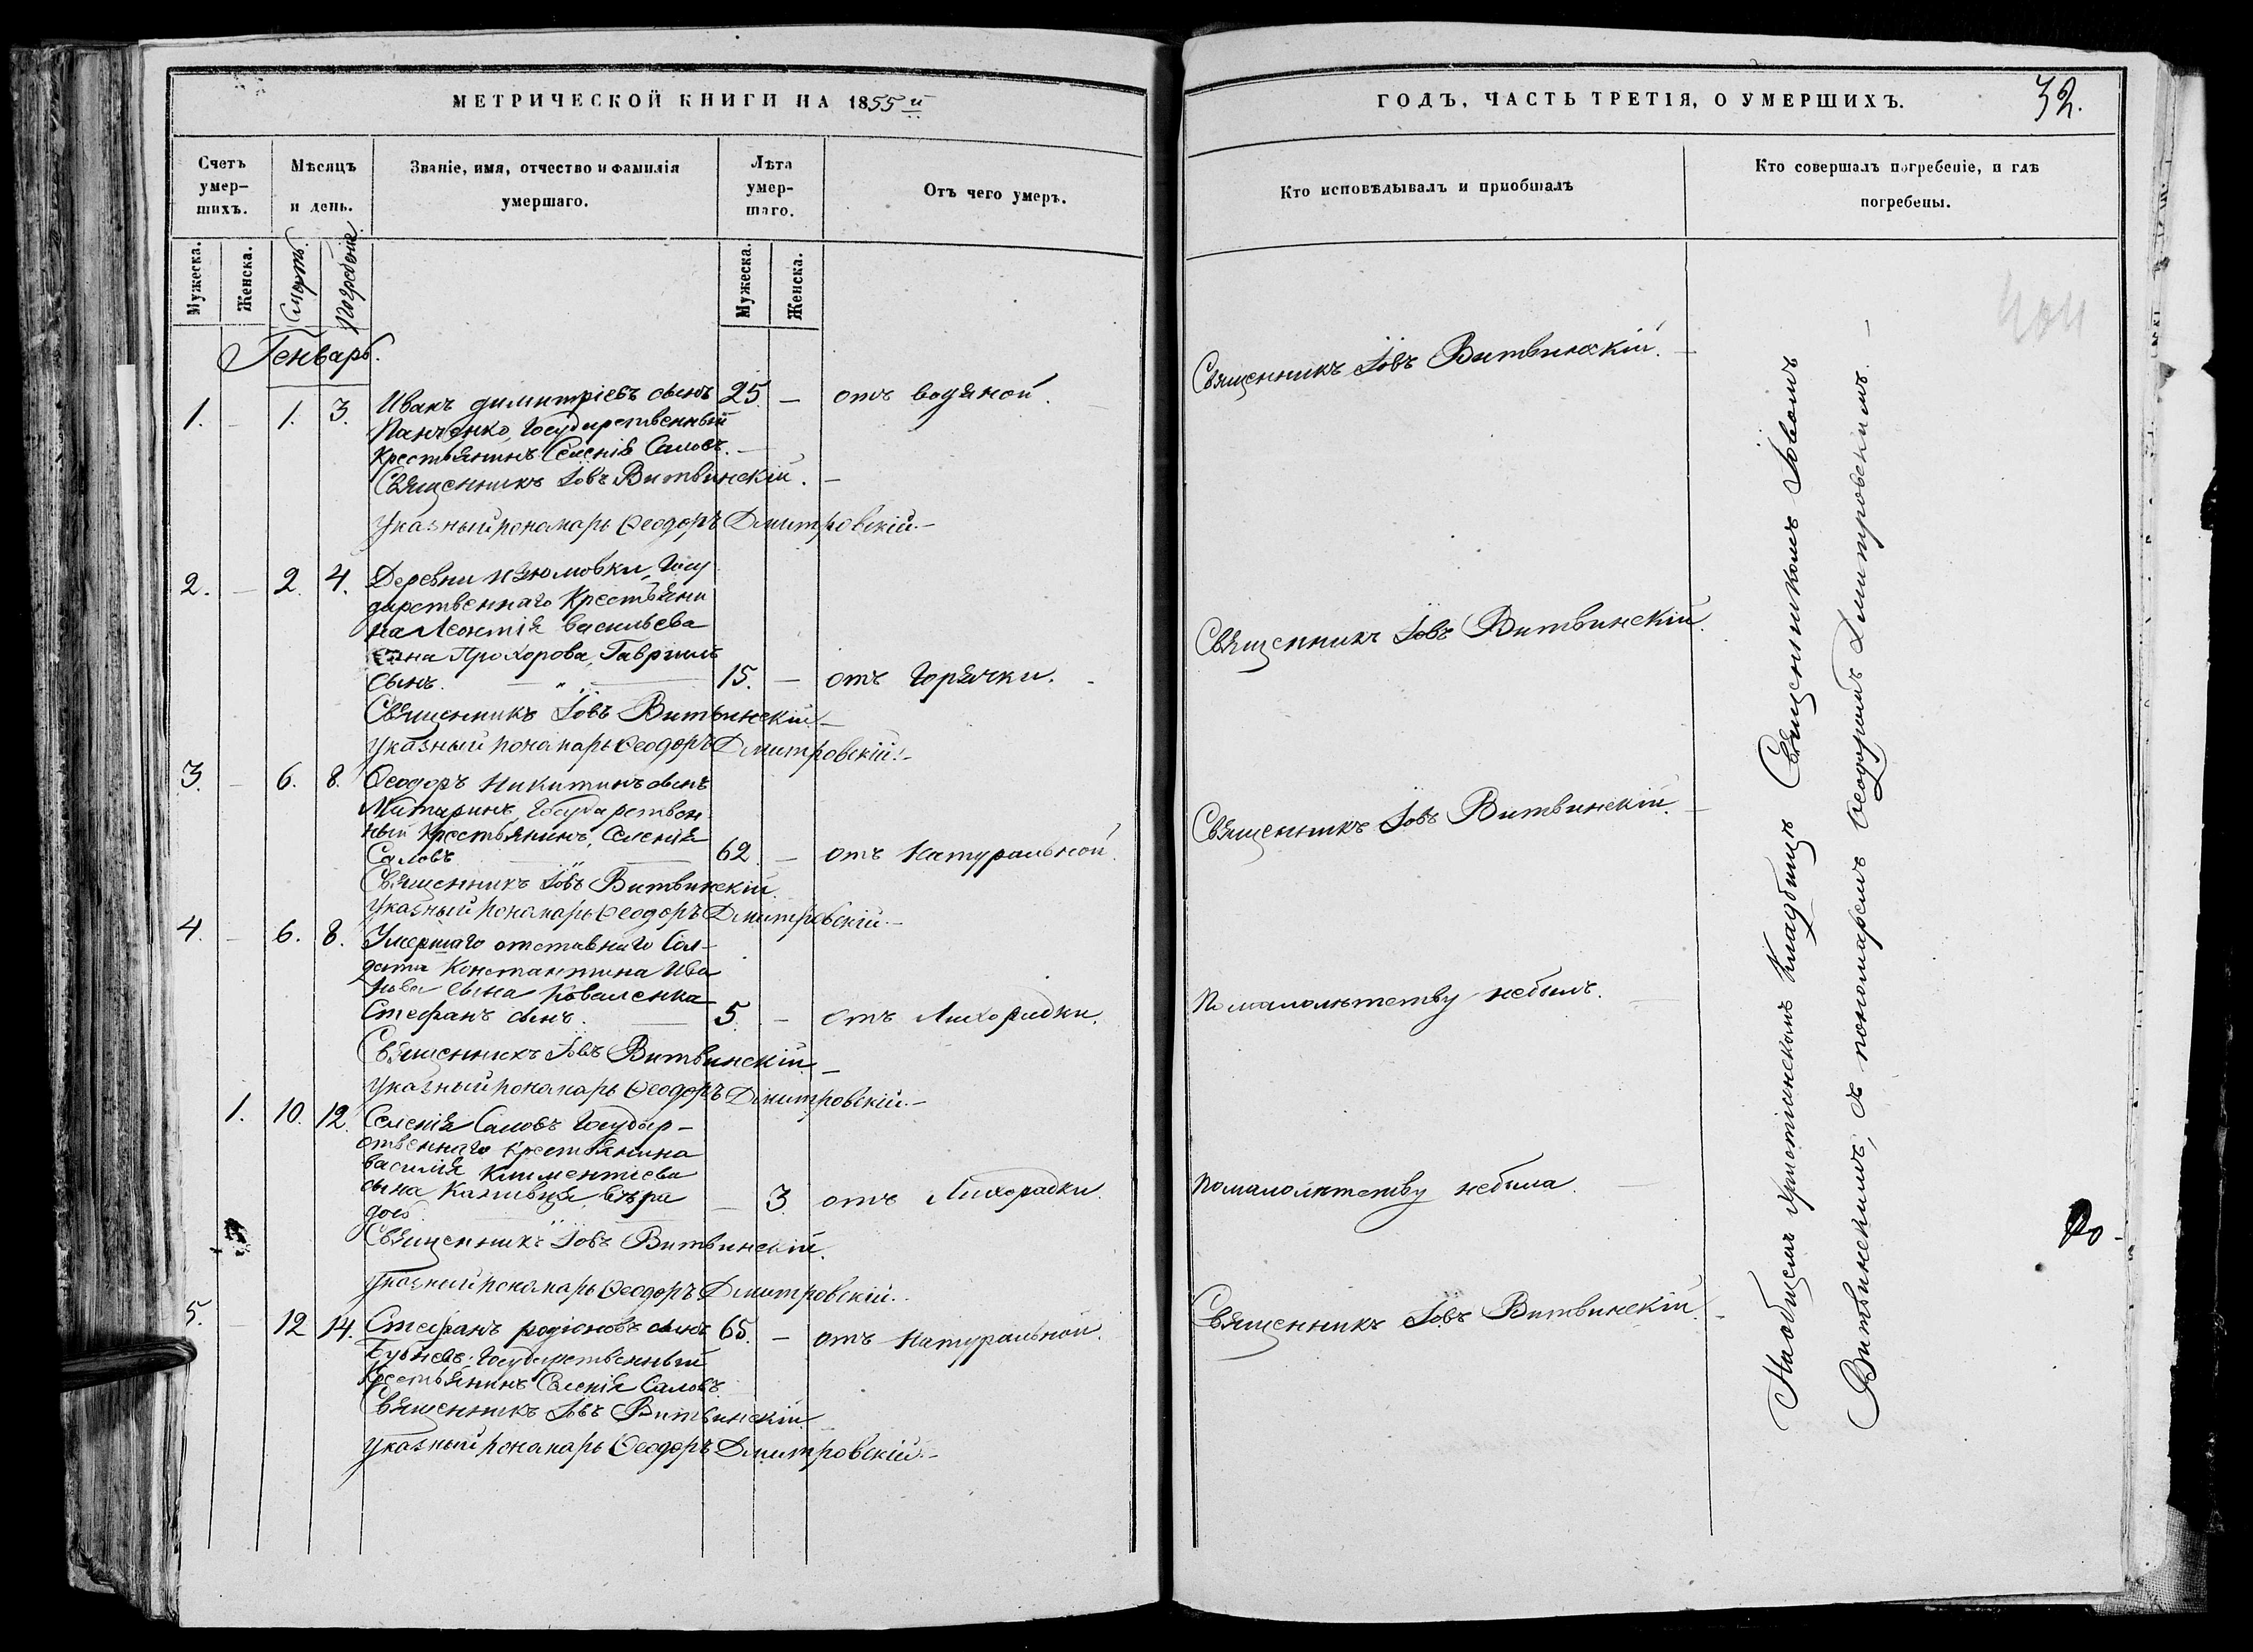 МЕТРИЧЕСКОЙ КНИГИ НА 1855й
Счетъ умер-шихъ.
Мѣсяцъ и день.
Званіе, имя, отчество и фамилія умершаго.
Лѣта умер-шаго.
Отъ чего умеръ.
Мужеска.
Женска.
Смерть.
Погребеніе.
Мужеска.
Женска.
Генварь.
1. – 1. 3. Иванъ димитріевъ сынъ 25. – отъ водяной.
Панченко, Государственный
Крестьянинъ Селенія Саловъ. –
Священникъ Іовъ Витвинскій. –
Указный понамарь Ѳеодоръ Дмитровскій. –
2. – 2. 4. Деревни Изюмовки, Госу
дарственнаго Крестьяни
на Леонтія васильева
сына Прохорова, Гавриилъ
Сынъ. 15. – отъ Горячки.
Священникъ Іовъ Витвинскій –
Указный понамарь Ѳеодоръ Дмитровскій. –
3. – 6. 8. Ѳеодоръ Никитинъ сынъ
Государствен
ный Крестьянинъ, Селенія
Саловъ 62. – отъ Натуральной.
Священникъ Іовъ Витвинскій.
Указный понамарь Ѳеодоръ Дмитровскій. –
4. – 6. 8. Умершаго отставнаго Сол-
дата Константина Ива
нова сына Коваленка
Стефанъ сынъ. 5. – отъ Лихорадки.
Священникъ Іовъ Витвинскій. –
Указный понамарь Ѳеодоръ Дмитровскій. –
1. 10. 12. Селенія Саловъ Государ-
ственнаго крестьянина
василія Климентіева
сына вѣра – 3. отъ Лихорадки.
дочь.
Священникъ Іовъ Витвинскій.
Указный понамарь Ѳеодоръ Дмитровскій.
5. – 12 14. Стефанъ родіоновъ сынъ 65. – отъ Натуральной.
Государственный
Крестьянинъ Селенія Саловъ.
Священникъ Іовъ Витвинскій
Указный понамарь Ѳеодоръ Дмитровскій. –
ГОДЪ, ЧАСТЬ ТРЕТІЯ, О УМЕРШИХЪ.
32.
Кто исповѣдывалъ и пріобщалъ
Кто совершалъ погребеніе, и гдѣ погребены.
Священникъ Іовъ Витвинскій. –
Священникъ Іовъ Витвинскій.
Священникъ Іовъ Витвинскій. –
Помалолѣтству небылъ.
Помалолѣтству небыла. –
Священникъ Іовъ Витвинскій. –
Наобщемъ христіянскомъ Кладбищѣ Священникомъ Іовомъ
Витвинскимъ, съ пономаремъ Ѳеодоромъ Дмитровскимъ. –